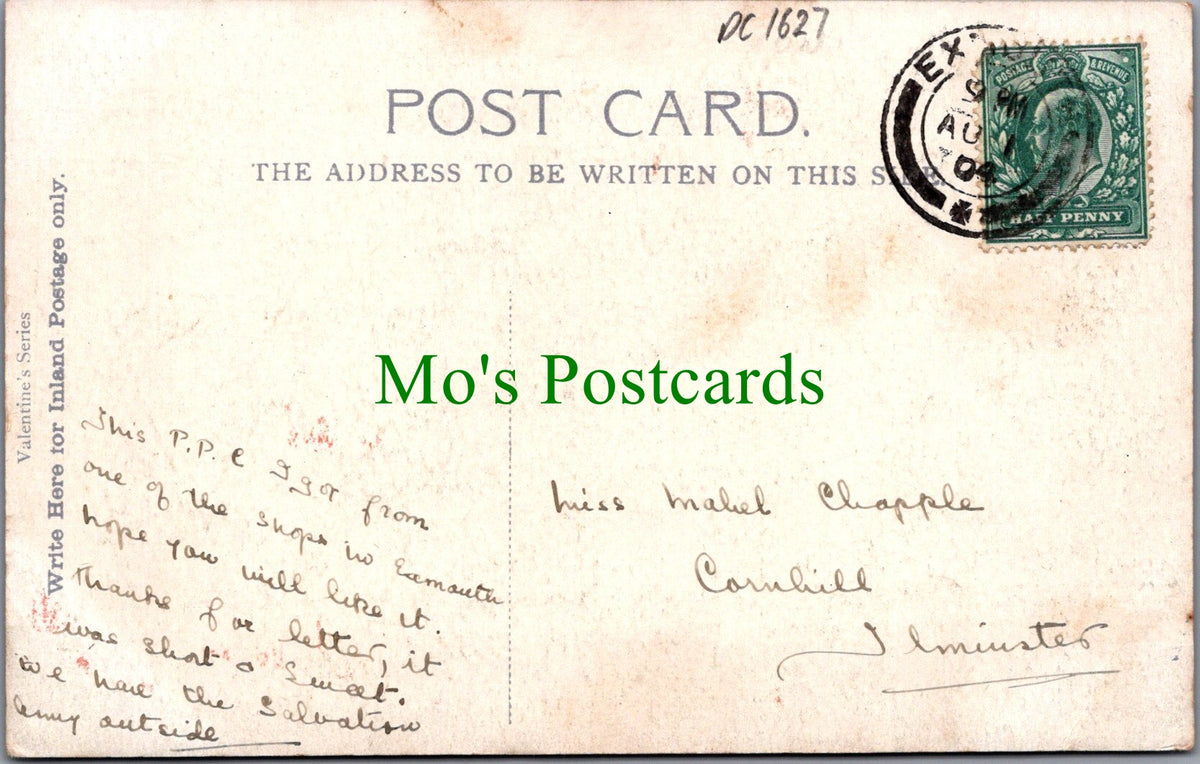 DC 1627
POST CARD.
THE ADDRESS TO BE WRITTEN ON THIS SIDE.
EX
9 PM
AU 1
04
POSTAGE & REVENUE
HALF PENNY
Valentine's Series
Write Here for Inland Postage only.
Mo's Postcards
This P.P.C I got from
one of the shops in Exmouth
hope you will like it.
Thanks for letter, it
was short & Sweet.
we have the Salvation
Army outside
Miss Mabel Chapple
Cornhill
Ilminster